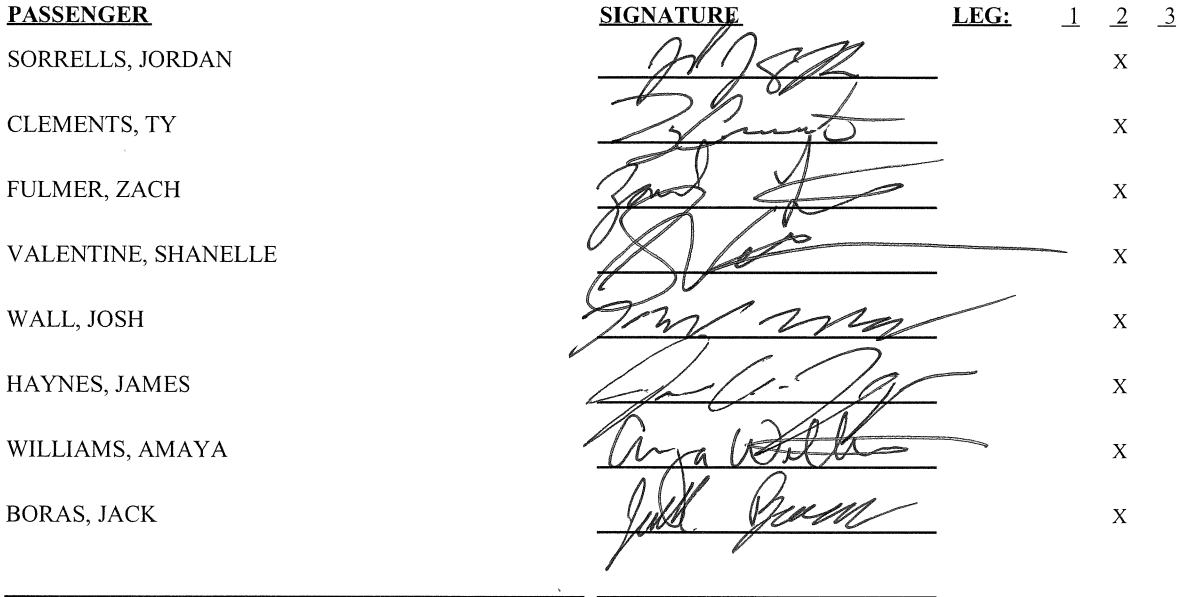 PASSENGER SIGNATURE LEG: 1 2 3
SORRELLS, JORDAN X
CLEMENTS, TY X
FULMER, ZACH Zach X
VALENTINE, SHANELLE X
WALL, JOSH X
HAYNES, JAMES X
WILLIAMS, AMAYA Amaya Williams X
BORAS, JACK X